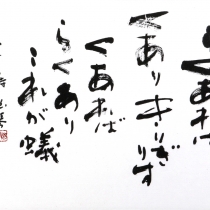 らくあれば
くありきりぎりす
くあれば
らくあり
これが蟻